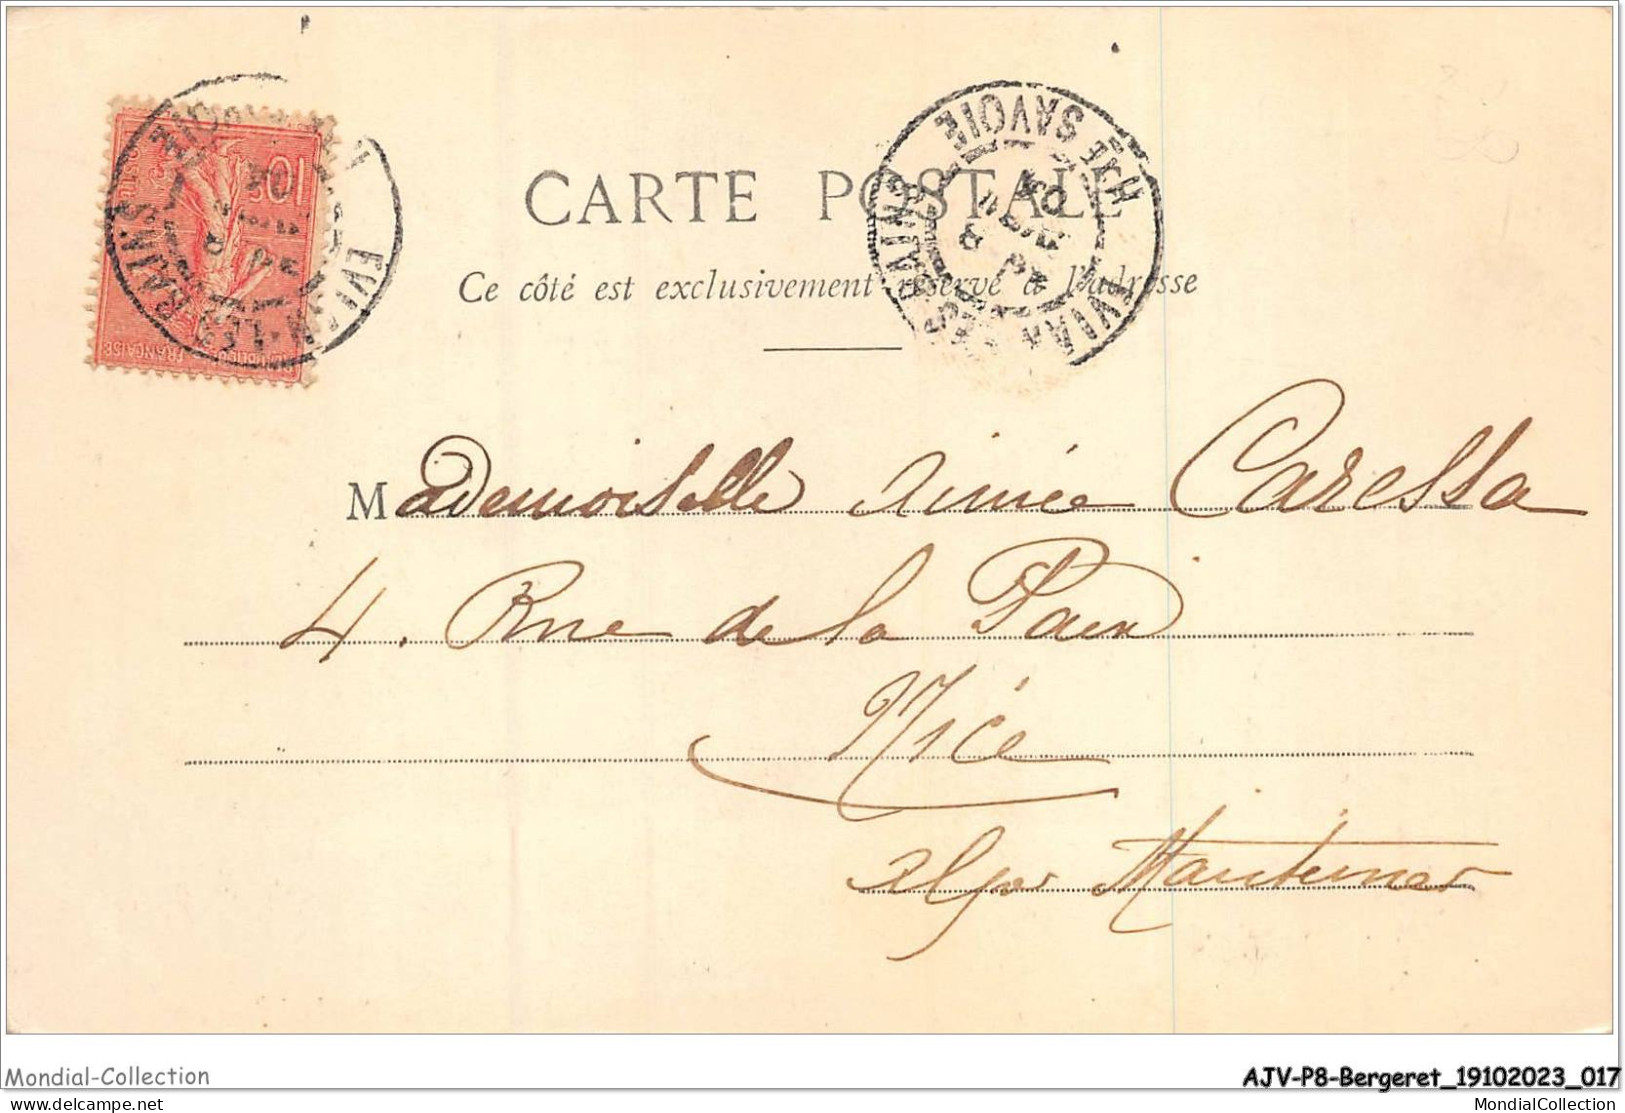 CARTE POSTALE
Ce côté est exclusivement réservé à l'adresse
EVIAN-LES-BAINS
HTE SAVOIE
10
FRANÇAISE
Mademoiselle Aimée Caressa
4. Rue de la Paix
Nice
Alpes Maritimes
Mondial-Collection
AJV-P8-Bergeret_19102023_017
www.delcampe.net
MondialCollection